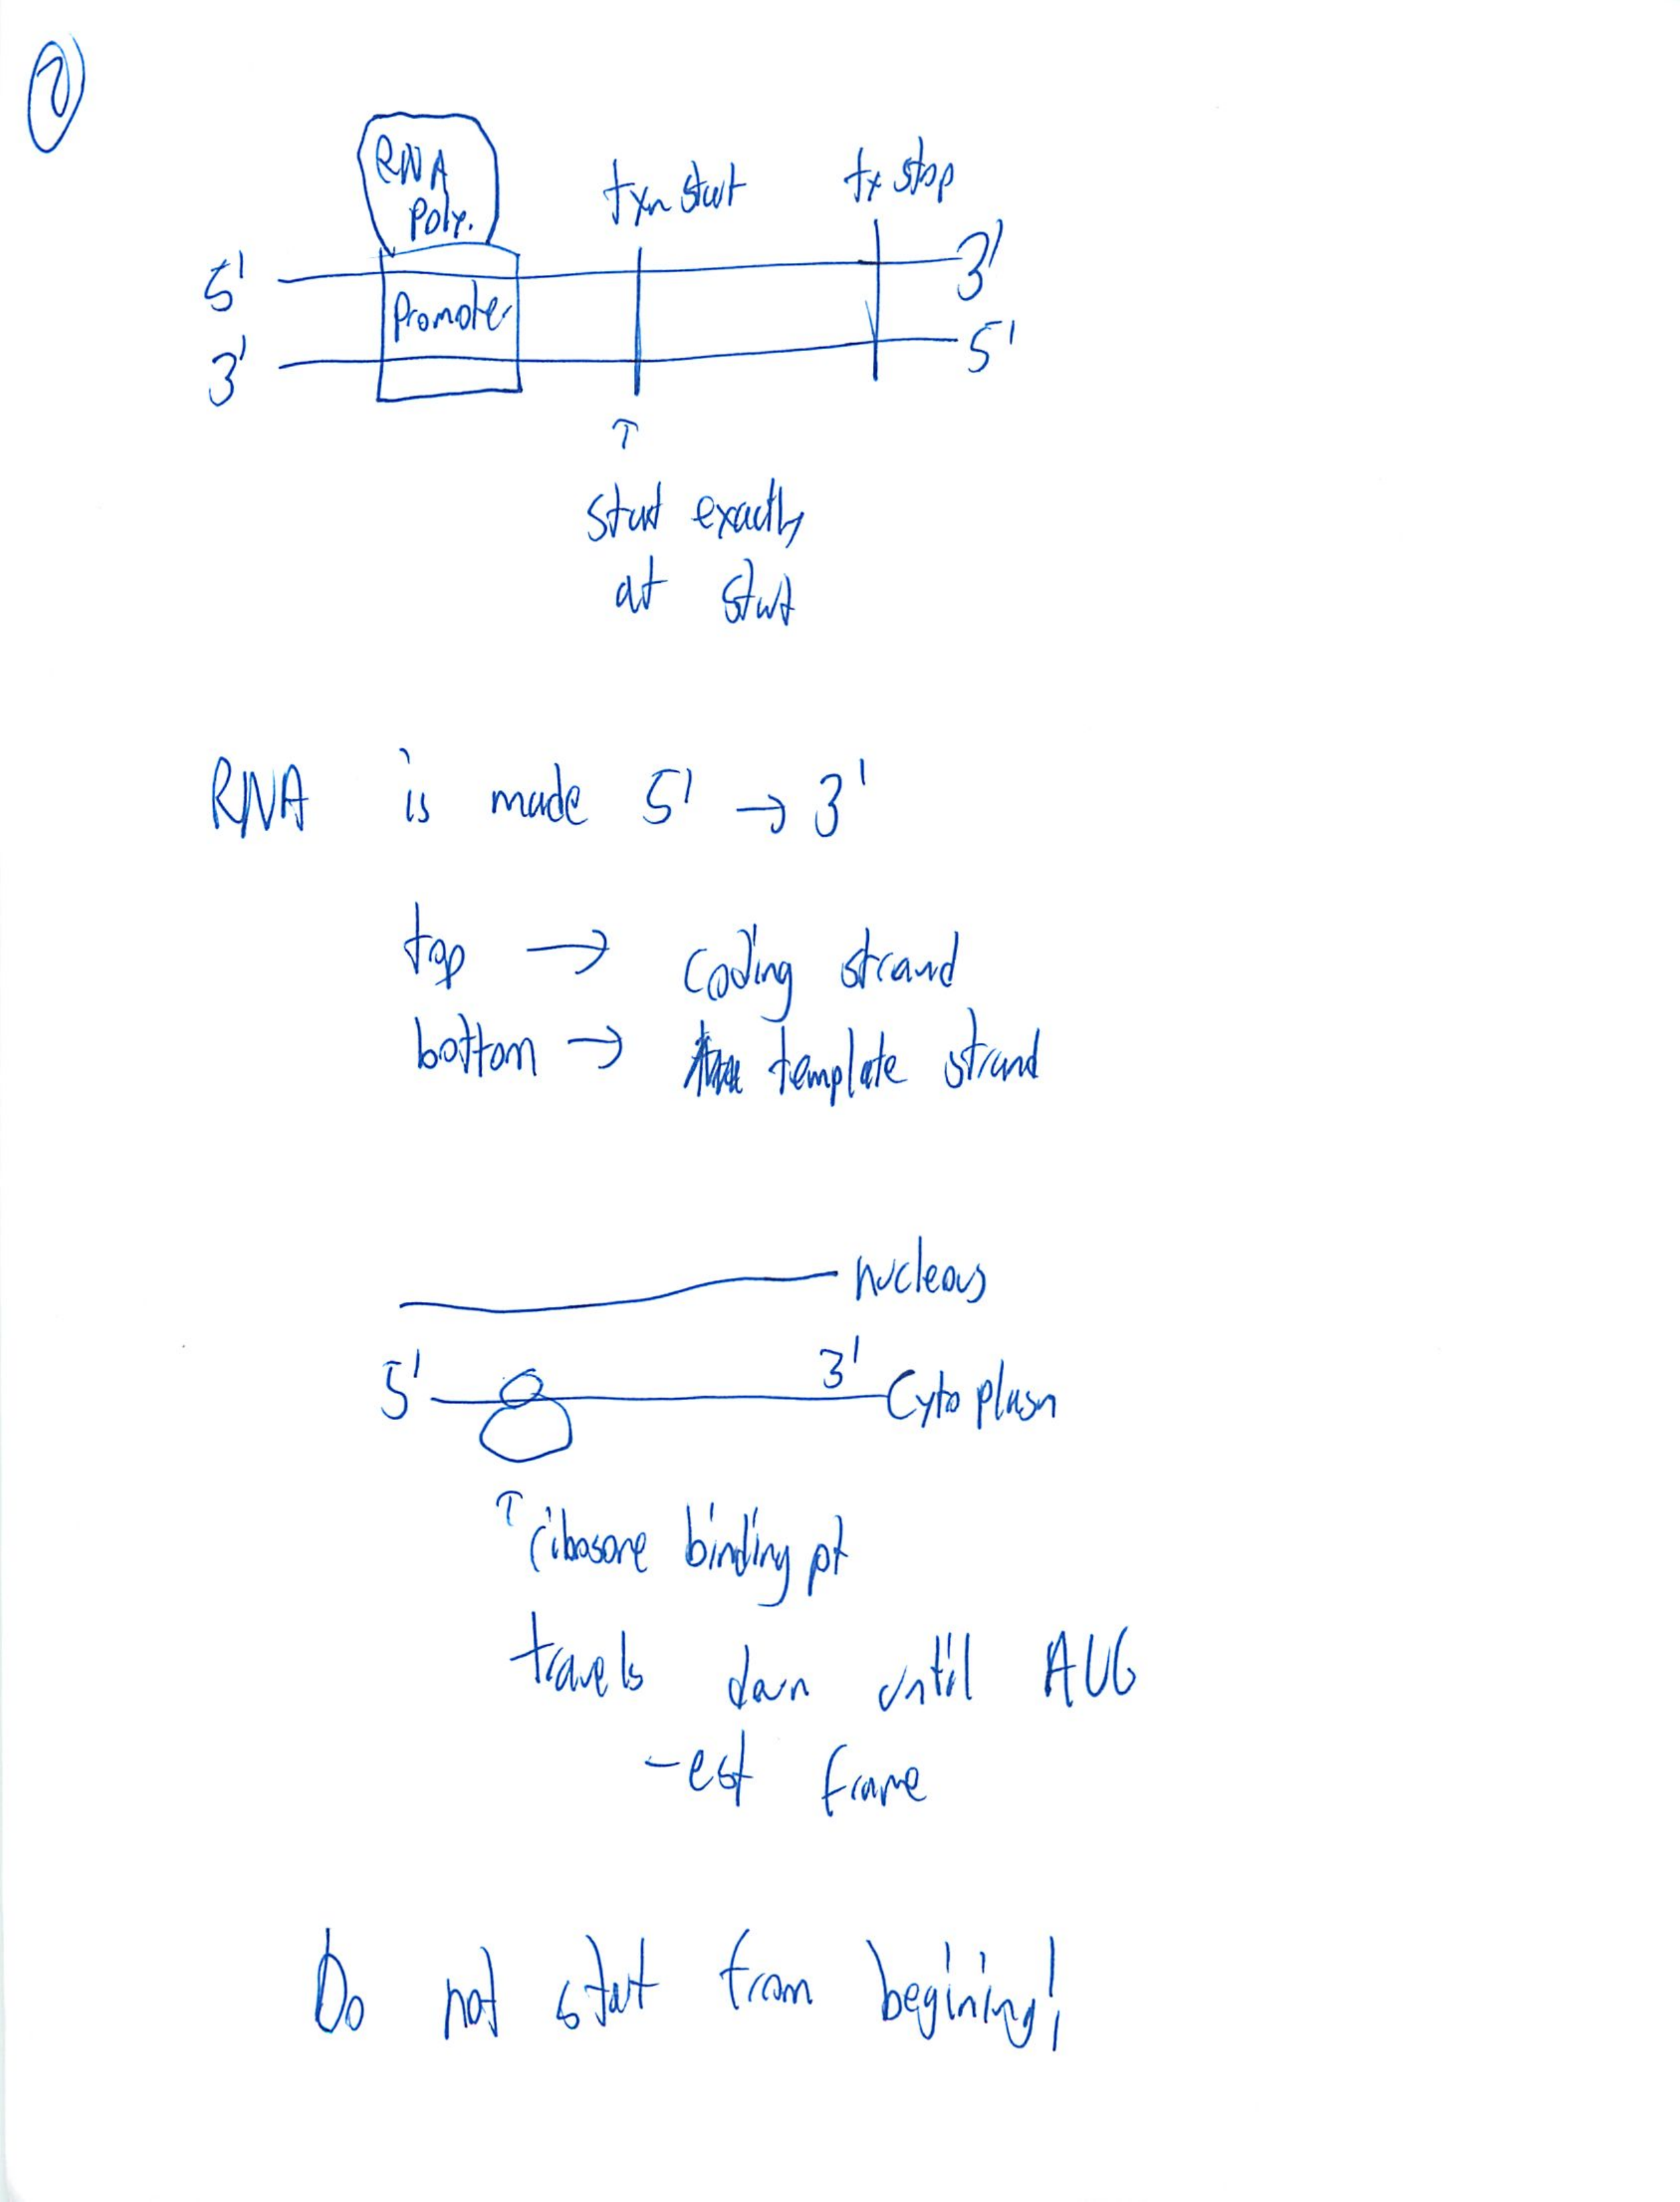 2
RNA
Poly.
txn start
tx stop
5' 3'
Promoter
3' 5'
↑
start exactly
at start
RNA is made 5' → 3'
top → coding strand
bottom → template strand
nucleous
5' 3'
Cytoplasm
↑ ribosome binding pt
travels down until AUG
- est frame
Do not start from begining!